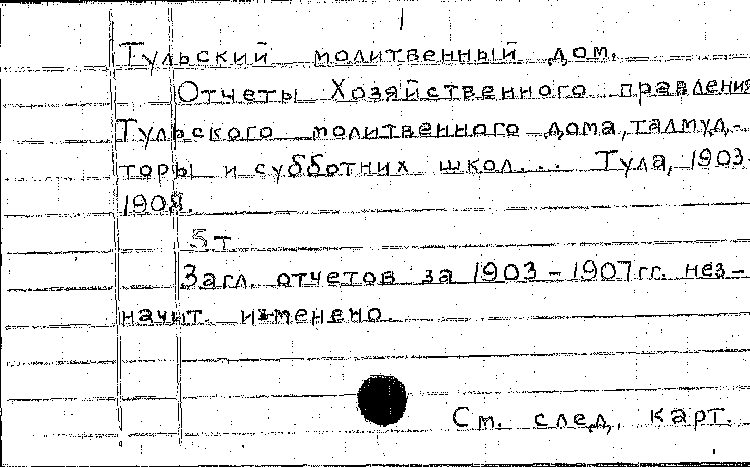 1
Тульский молитвенный дом.
Отчеты Хозяйственного правления
Тульского молитвенного дома, талмуд-
торы и субботних школ... Тула, 1903-
1908.
5 т.
Загл. отчетов за 1903 - 1907 гг. нез-
начит. изменено.
См. след. карт.